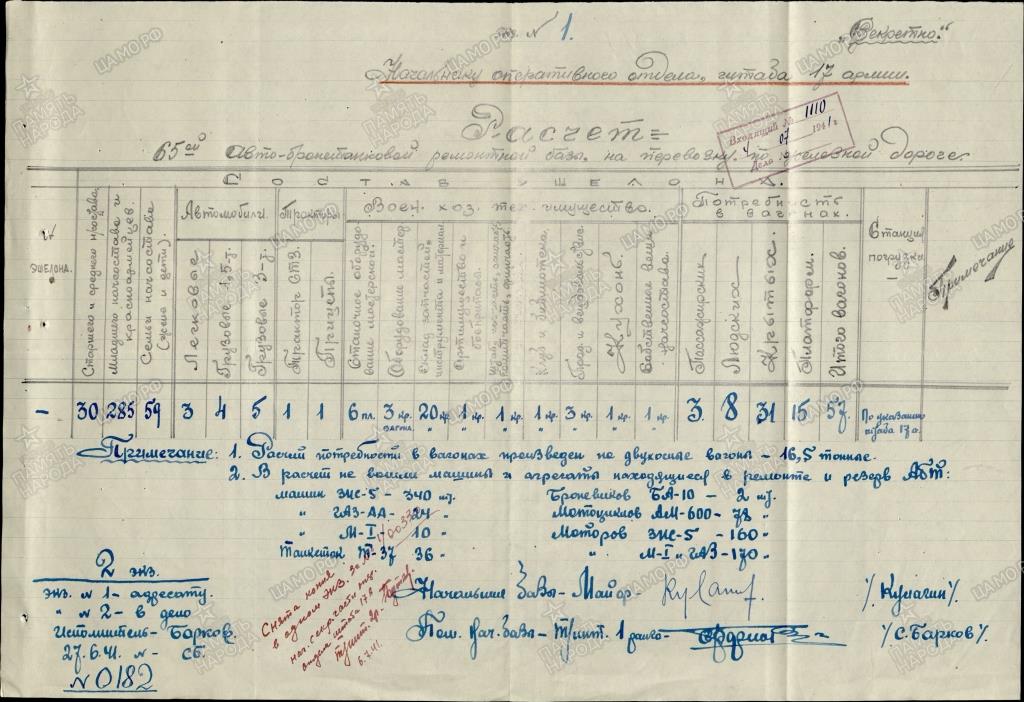 экз. № 1.
„Секретно."
Начальнику оперативного отдела, штаба 17 армии.
Входящий № 1110
4 07 1941 г
Дело №
Расчет=
65ой Авто-бронетанковой ремонтной базы. на перевозку по железной дороге.
СОСТАВ ЭШЕЛОНА.
№ ЭШЕЛОНА.
Старшего и среднего н/состава.
Младшего начсостава и красноармейцев.
Семьи начсостава (жены и дети).
Автомобили.
Легковые
Грузовые 1,5-т.
Грузовые 3-т.
Тракторы
Трактор СТЗ.
Прицепы.
Воен. хоз. тех. имущество.
Станочное оборудование мастерской.
Оборудование
Склад запчастей, инструмента и материал
Артимущество и боеприпасы.
Клуб и библиотека,
Кухонь.
Собственные вещи начсостава.
Потребность в вагонах.
Пассажирских
Людских
Крытых.
Платформ.
Итого вагонов.
Станции погрузки
Примечание
– 30 285 59 3 4 5 1 1 6 пл. 3 кр. вагона. 20 кр. 1 кр. 1 кр. 1 кр. 3 кр. 1 кр. 1 кр. 3 8 31 15 57. По указанию штаба 17 а.
Примечание: 1. Расчет потребности в вагонах произведен на двухосные вагоны – 16,5 тонные.
2. В расчет не вошли машины и агрегаты находящиеся в ремонте и резерв АБТ:
машин ЗИС-5 – 340 шт. Броневиков БА-10 – 2 шт.
„ ГАЗ-АА – 24 „ Мотоциклов АМ-600 – 78 „
„ М-I – 10 „ Моторов ЗИС-5 – 160 „
Танкеток Т-37 36 „ „ М-I и ГАЗ – 170 „
2 экз.
экз. № 1 – адресату.
„ № 2 – в дело
Исполнитель – Барков.
27.6.41. № – сб.
№ 0182
Снята копия
в одном экз. за № 1/0033
нач. секр. части опер.
отдела штаба 17 а
6.7.41.
Начальник Базы – Майор. /Кулагин/.
Пом. нач. базы – В/инт. 1 ранга – /С. Барков/.
ЦАМО РФ
ПАМЯТЬ НАРОДА